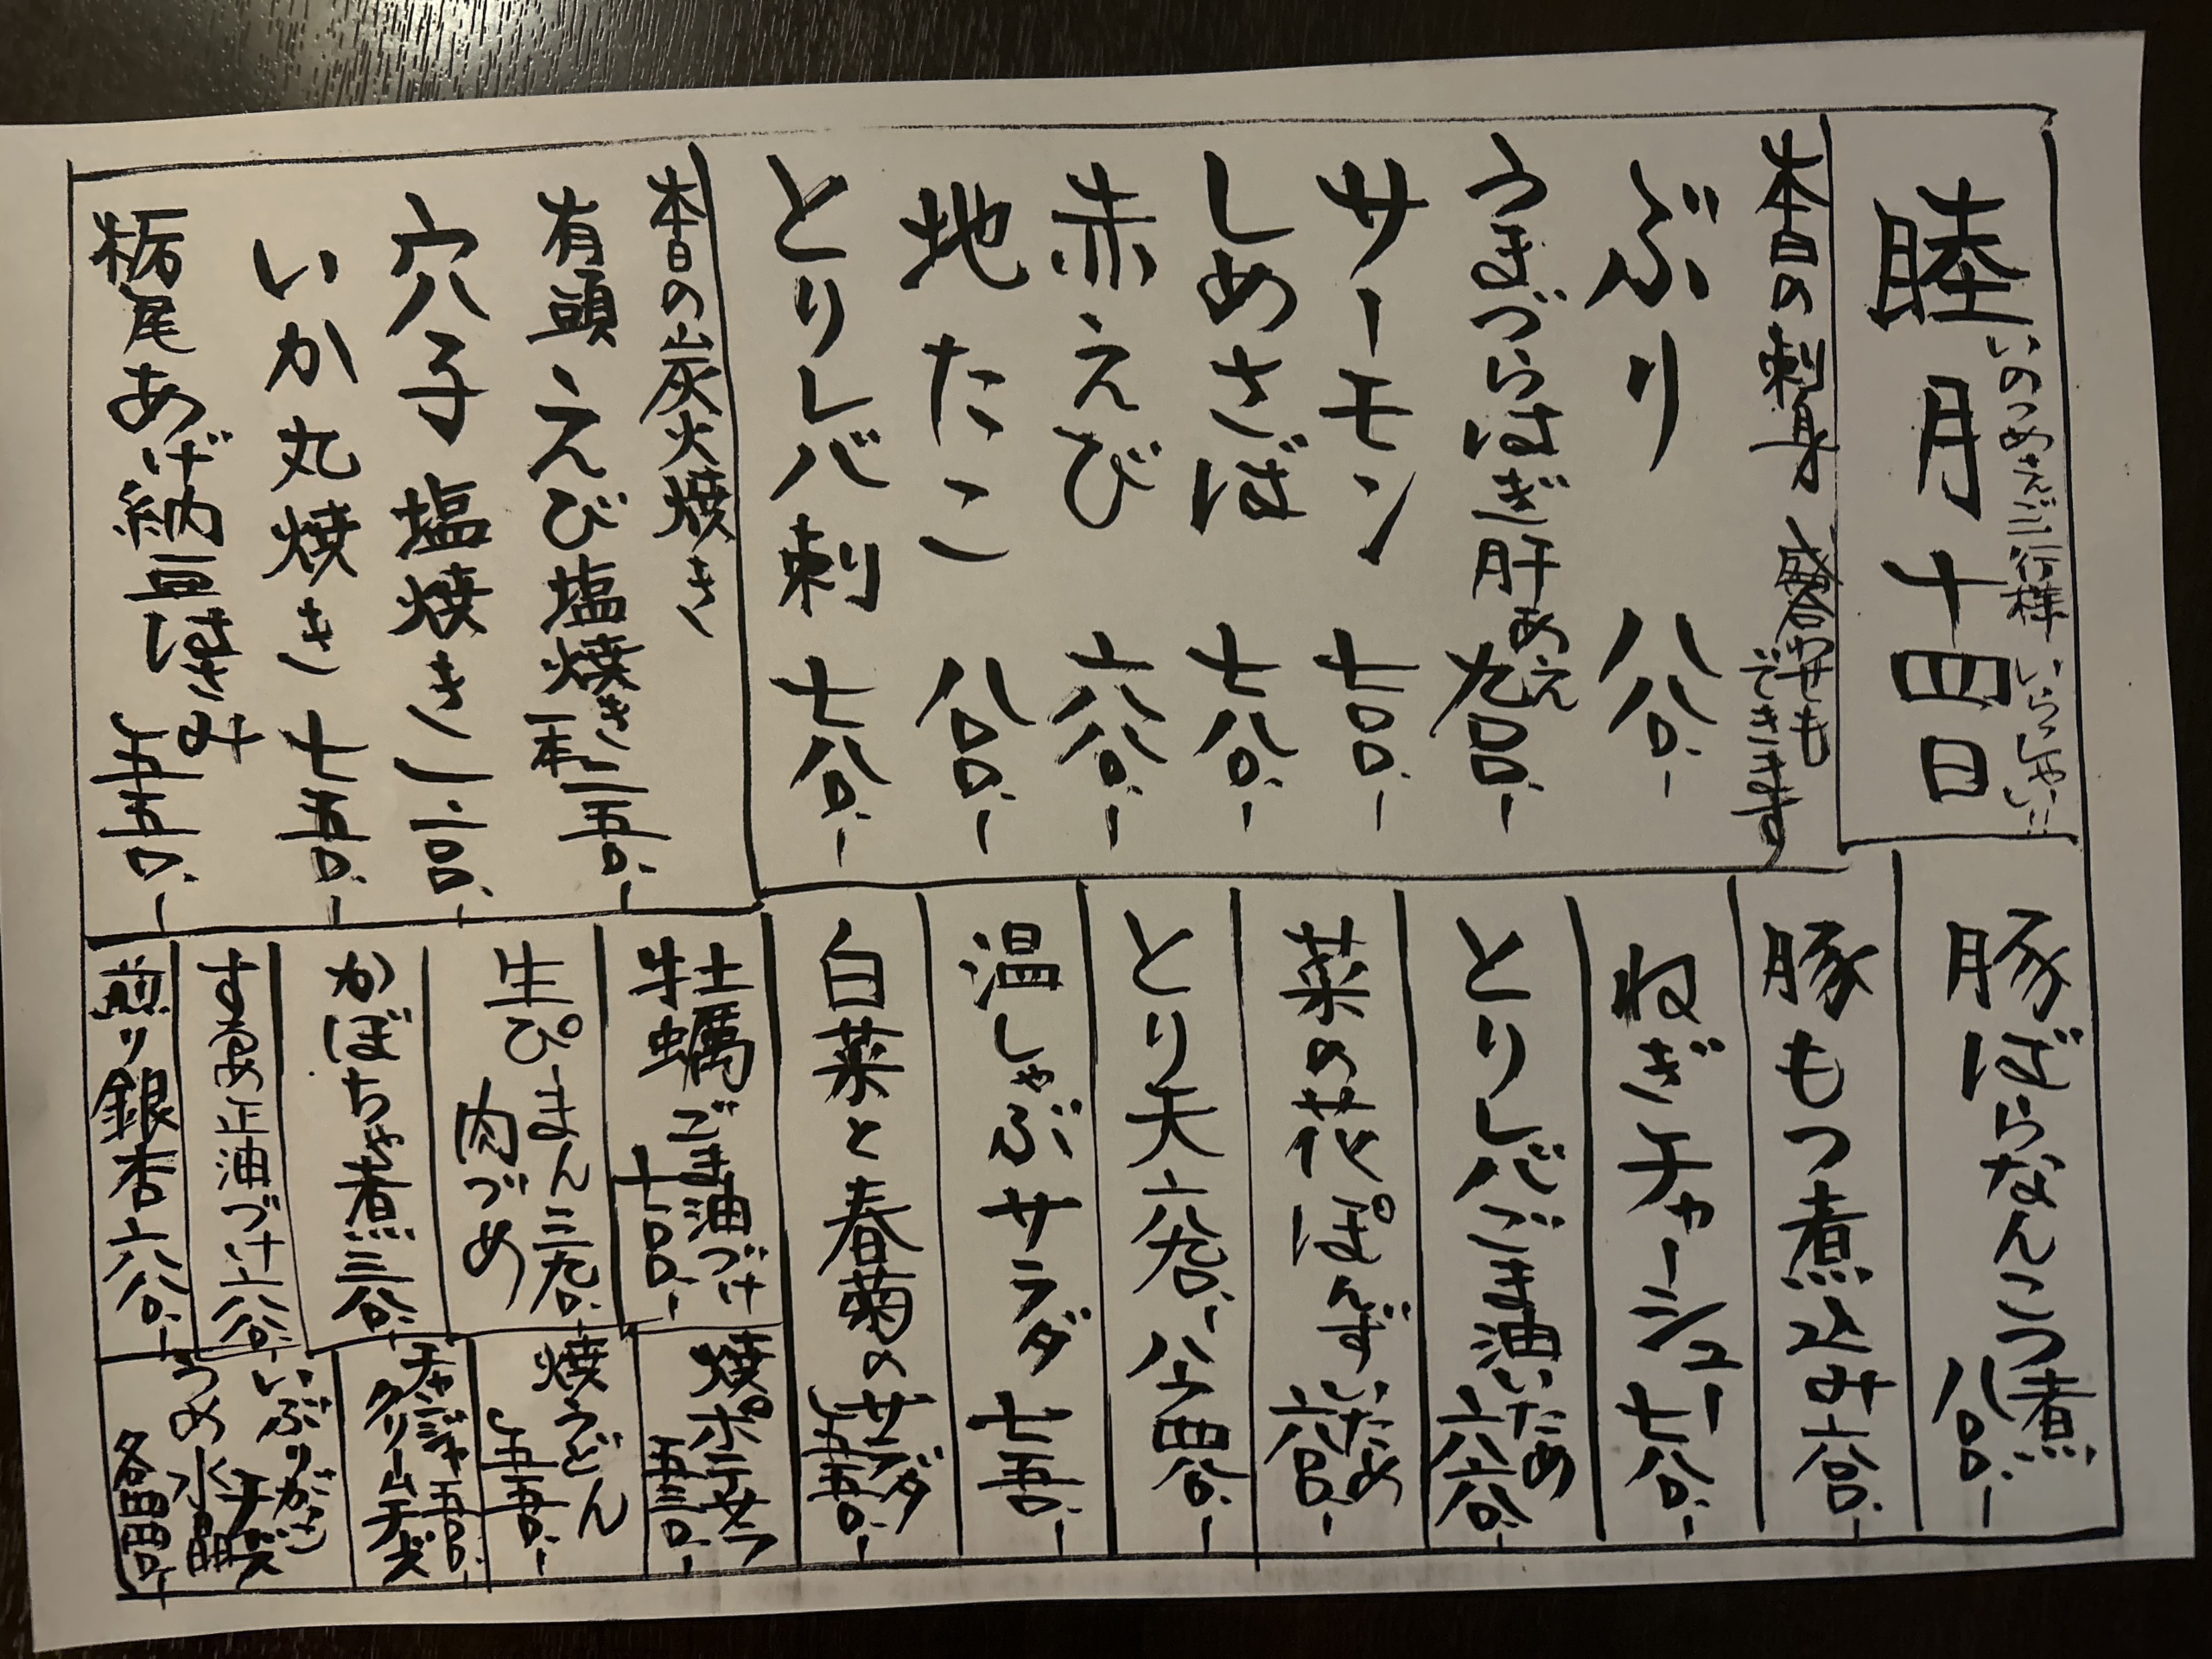 睦月十四日
いらっしゃい!!
本日の刺身 盛合わせも
できます
ぶり 八八〇.-
うまづらはぎ肝あえ 九八〇.-
サーモン 七八〇.-
しめさば 七八〇.-
赤えび 六八〇.-
地たこ 八八〇.-
とりレバ刺 七八〇.-
本日の炭火焼き
有頭えび塩焼き
穴子塩焼き
いか丸焼き 七五〇.-
栃尾あげ納豆はさみ 五五〇.-
豚ばらなんこつ煮
豚もつ煮込み
ねぎチャーシュー 七八〇.-
とりレバごま油いため 六八〇.-
菜の花ぽんずいため
とり天
温しゃぶサラダ 七五〇.-
白菜と春菊のサラダ 五五〇.-
牡蠣ごま油づけ
生ぴーまん 三九〇.-
肉づめ
かぼちゃ煮 三八〇.-
するめ正油づけ 六八〇.-
煎り銀杏 六八〇.-
焼ポテサラ 五三〇.-
焼うどん 五五〇.-
チャンジャ
クリームチーズ
いぶりがっこチーズ
うめ水晶